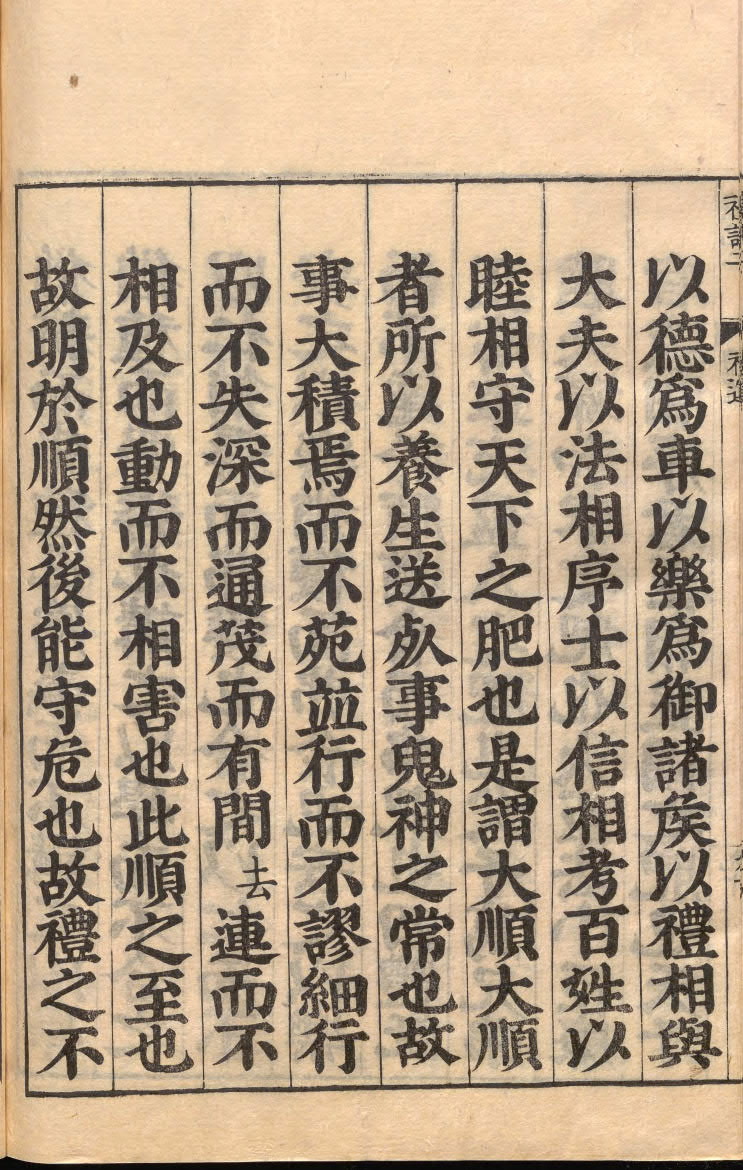 以德爲車以樂爲御諸矦以禮相與
大夫以法相序士以信相考百姓以
睦相守天下之肥也是謂大順大順
者所以養生送死事鬼神之常也故
事大積焉而不苑並行而不謬細行
而不失深而通茂而有間去連而不
相及也動而不相害也此順之至也
故明於順然後能守危也故禮之不